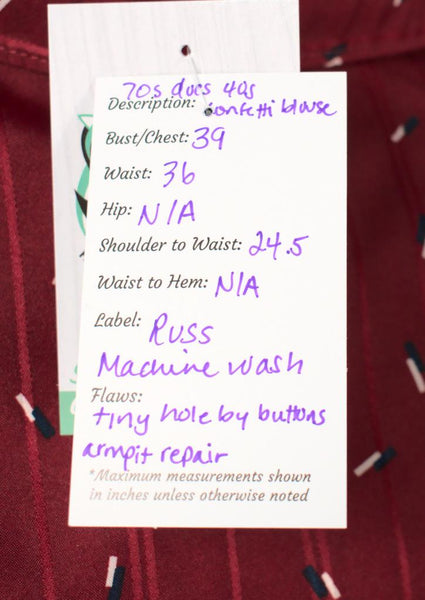 70s does 40s
Description: confetti blouse
Bust/Chest: 39
Waist: 36
Hip: N/A
Shoulder to Waist: 24.5
Waist to Hem: N/A
Label: Russ
Machine wash
Flaws:
tiny hole by buttons
armpit repair
*Maximum measurements shown
in inches unless otherwise noted